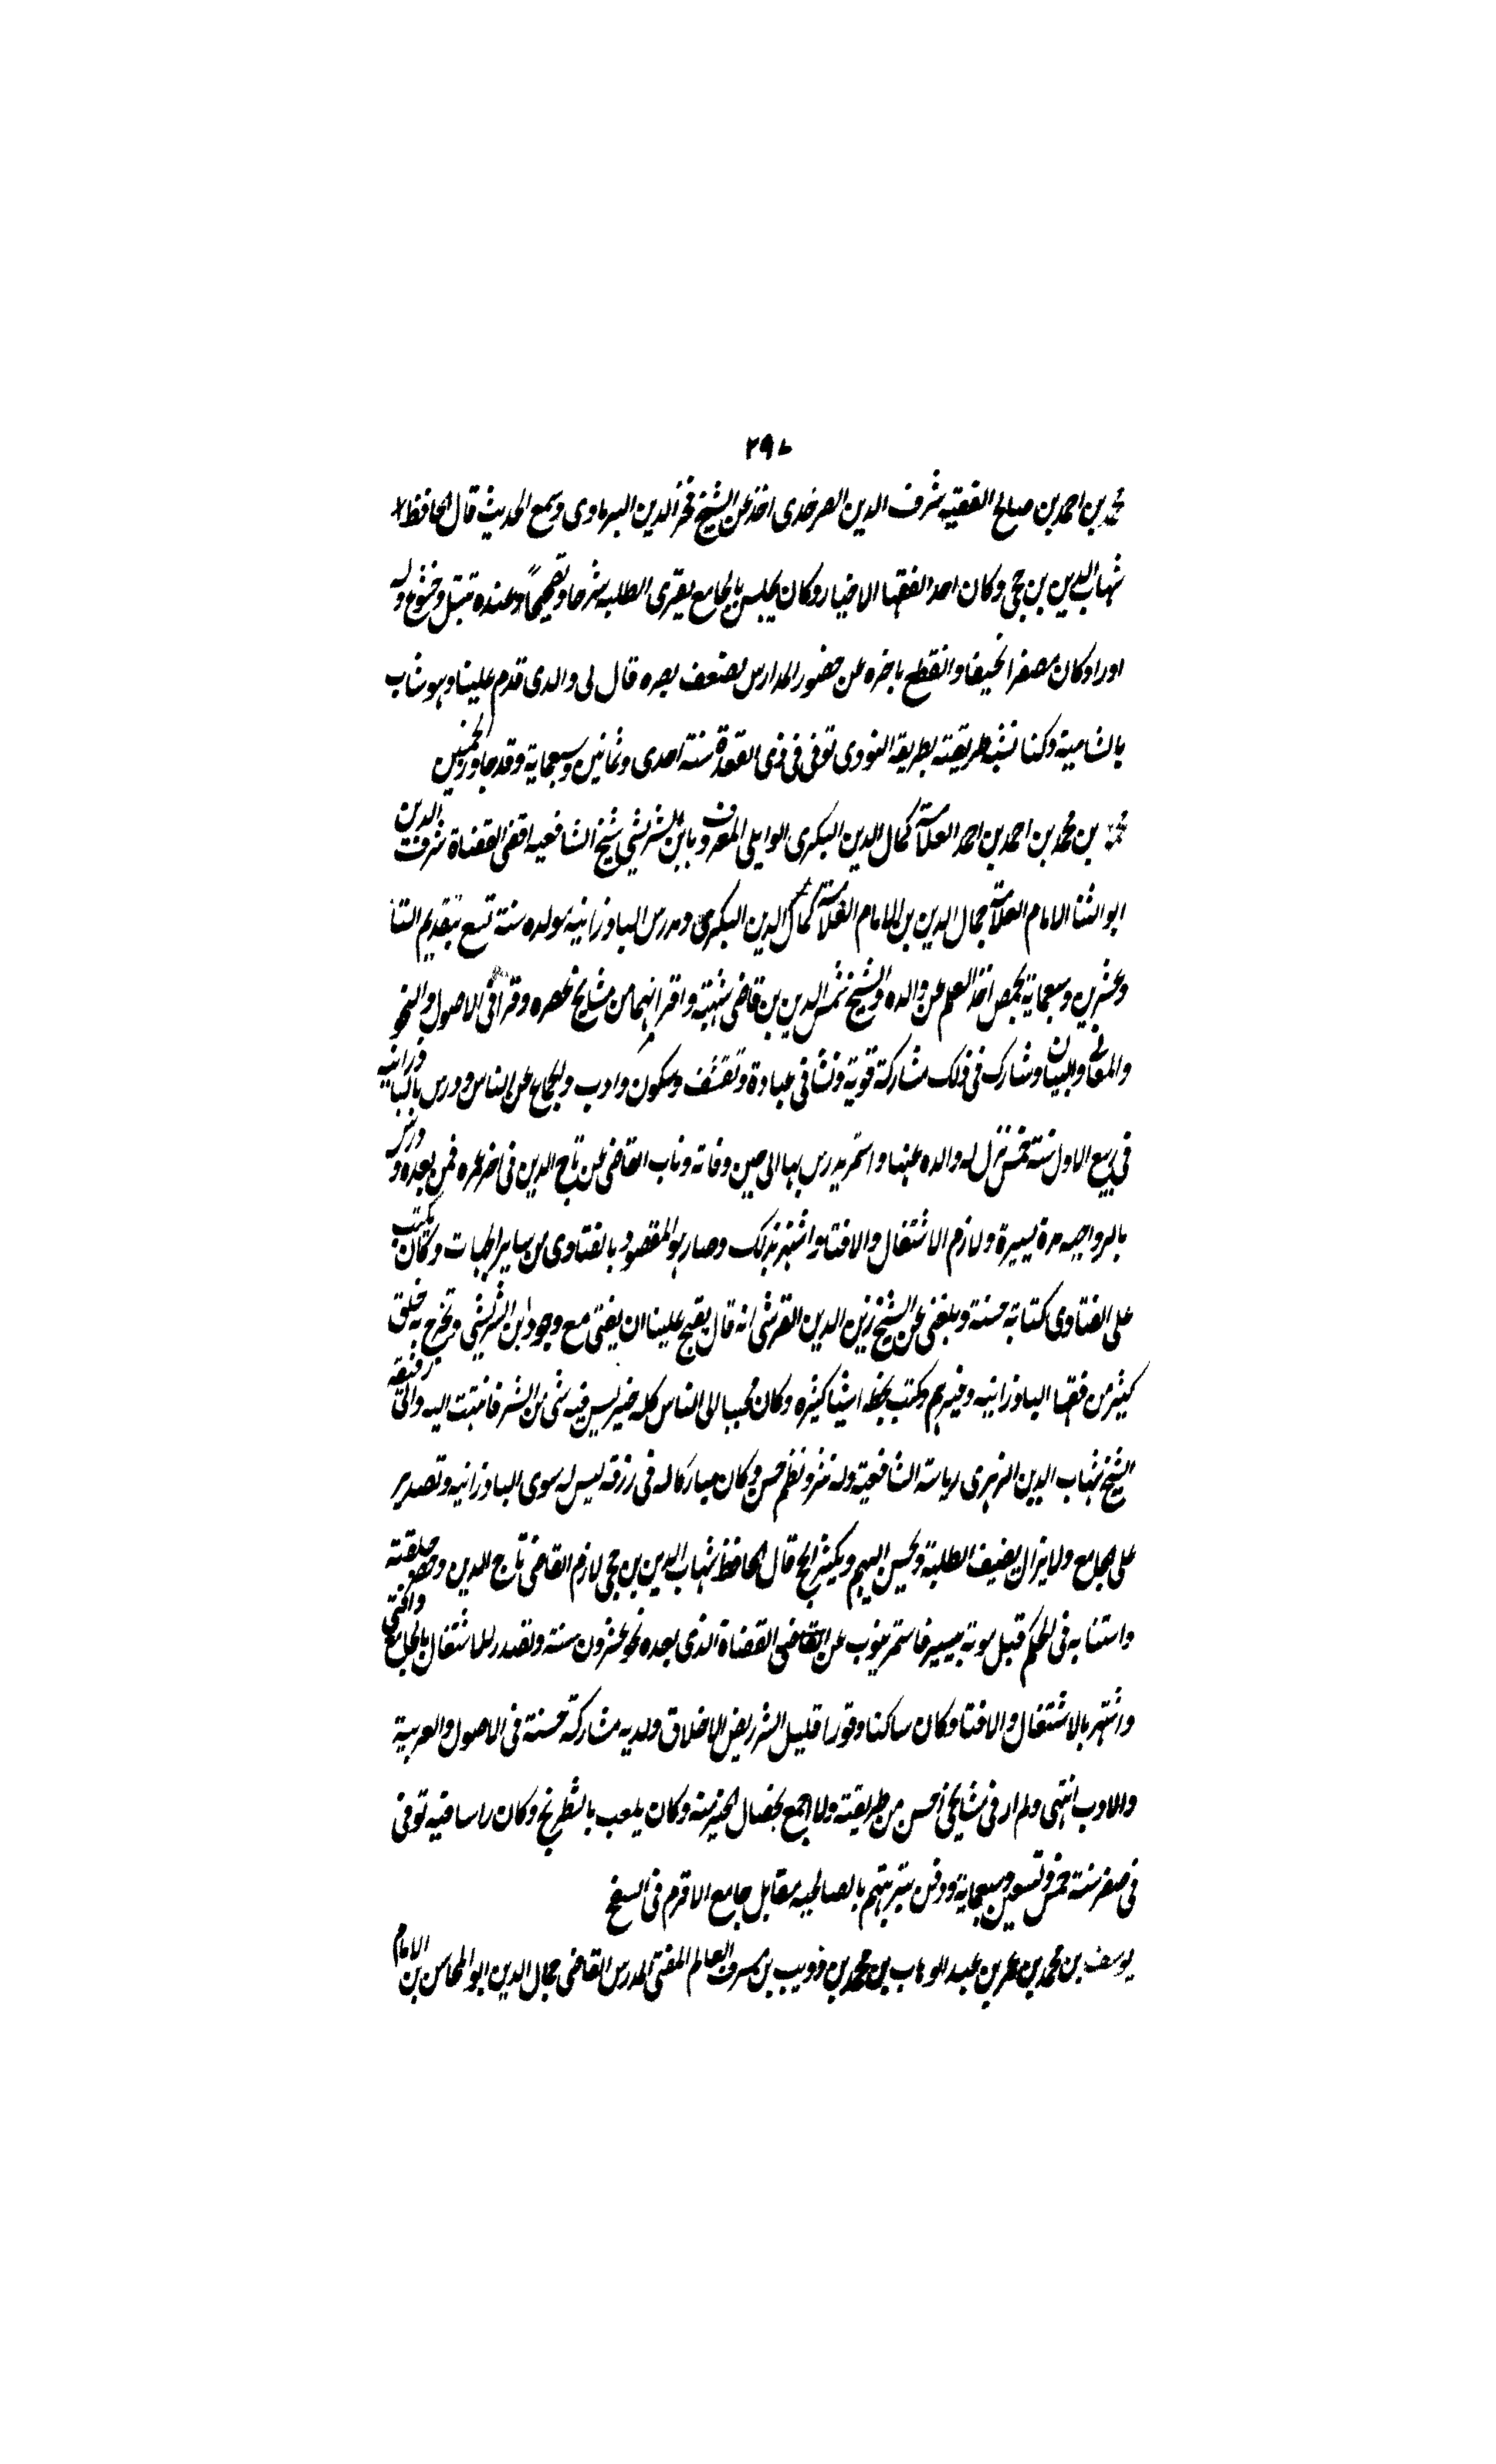 ٢٩٠
محمد بن احمد بن صالح الفقيه شرف الدين الصرخدى اخذ عن الشيخ فخر الدين البرماوى وسمع الحديث قال الحافظ
شهاب الدين بن حجى وكان احد الفقها الاخيار وكان يجلس بالجامع يقرى الطلبه شرحا وتصحيحاً وعنده تبتل وخشوع وله
اوراد وكان مصفرا نحيفا وانقطع باخره عن حضور المدارس لضعف بصره قال لى والدى قدم علينا وهو شاب
بالشامية وكنا نشبه طريقته بطريقة النووى توفى فى ذى القعدة سنة احدى وثمانين وسبعماية وقد جاوز الخمسين
بن محمد بن احمد بن احمد العلامة كمال الدين البكرى الوايلى المعروف بابن الشريشى شيخ الشافعيه اقضى القضاة شرف الدين
ابو الثنا الامام العلامة جمال الدين بن الامام العلامة كمال الدين البكرى ومدرس البادرانيه مولده سنة تسع بتقديم التا
وعشرين وسبعماية بحمص اخذ العلم عن والده والشيخ شمس الدين بن قاضى شهبة واقرانهما من مشايخ عصره وقرا فى الاصول والنحو
والمعانى والبيان وشارك فى ذلك مشاركة قوية ونشا فى عبادة وتقشف وسكون وادب وانجماع عن الناس ودرس بالبادرانيه
فى ربيع الاول سنة خمس نزل له والده عنها واستمر يدرس بها الى حين وفاته وناب القاضى عن تاج الدين فى اخر عمره فمن بعده ودرس
بالرواحيه مدة يسيرة ولازم الاشتغال والافتا واشتهر بذلك وصار هو المقصود بالفتاوى من ساير الجهات وكان يكتب
على الفتاوى كتابة حسنة وبلغنى عن الشيخ زين الدين القرشى انه قال يقبح علينا ان يفتى مع وجود ابن الشريشى وتخرج به خلق
كثير من فقها البادرانيه وغيرهم وكتب بخطه اشيا كثيره وكان محببا الى الناس كله خير ليس فيه شى من الشر فانتهت اليه والى رفيقه
الشيخ شهاب الدين الزهرى رياسة الشافعية وله نثر ونظم حسن وكان مباركا له فى رزقه ليس له سوى البادرانيه وتصدير
على الجامع ولا يزال يضيف الطلبة ويحسن اليهم ويكثر الحج قال الحافظ شهاب الدين بن حجى لازم القاضى تاج الدين وحضر حلقته
واستنابه فى الحكم قبل موته بيسير فاستمر ينوب عن قاضى القضاة الذى بعده نحو عشرون سنة وتصدر للاشتغال بالجامع وافتى
واشتهر بالاشتغال والافتا وكان ساكنا وقورا قليل الشر ريض الاخلاق ولديه مشاركة حسنة فى الاصول والعربية
والادب انتهى ولم ار فى مشايخى احسن من طريقته ولا اجمع لخصال الخير منه وكان يلعب بالشطرنج وكان راسا فيه توفى
فى صفر سنة خمس وتسعين وسبعماية ودفن بتربتهم بالصالحيه مقابل جامع الافرم فى السفح
يوسف بن محمد بن عمر بن عبد الوهاب بن محمد بن ذويب بن مشرف العالم المفتى المدرس القاضى جمال الدين ابو المحاسن بن الامام